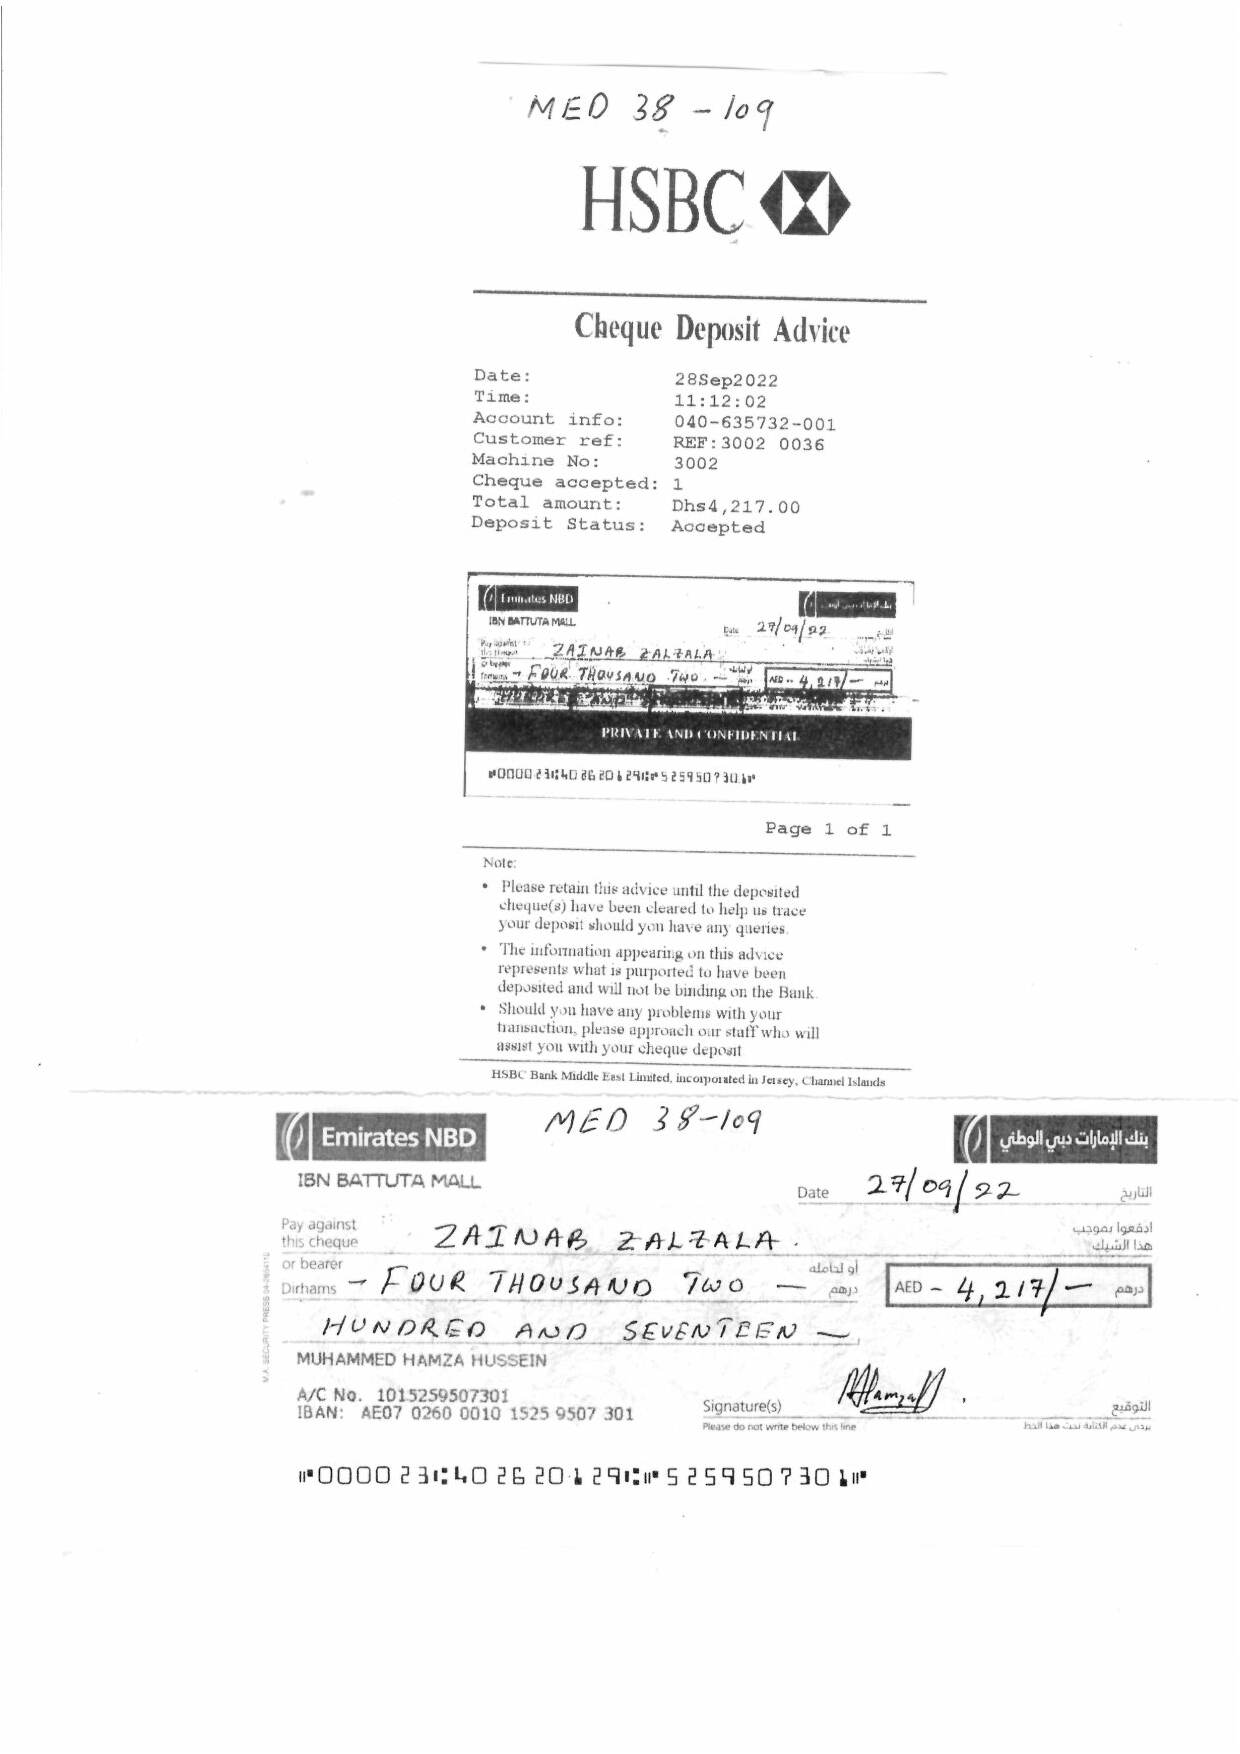 MED 38 - 109
HSBC
Cheque Deposit Advice
Date: 28Sep2022
Time: 11:12:02
Account info: 040-635732-001
Customer ref: REF:3002 0036
Machine No: 3002
Cheque accepted: 1
Total amount: Dhs4,217.00
Deposit Status: Accepted
Emirates NBD
IBN BATTUTA MALL
Date 27/09/22
Pay against
ZAINAB ZALZALA
or bearer
FOUR THOUSAND TWO — AED - 4,217/-
PRIVATE AND CONFIDENTIAL
⑈000023⑆402620129⑆⑈5259507301⑈
Page 1 of 1
Note:
• Please retain this advice until the deposited
cheque(s) have been cleared to help us trace
your deposit should you have any queries.
• The information appearing on this advice
represents what is purported to have been
deposited and will not be binding on the Bank.
• Should you have any problems with your
transaction, please approach our staff who will
assist you with your cheque deposit
HSBC Bank Middle East Limited, incorporated in Jersey, Channel Islands
MED 38-109
Emirates NBD بنك الإمارات دبي الوطني
IBN BATTUTA MALL
Date 27/09/22 التاريخ
Pay against ادفعوا بموجب
this cheque ZAINAB ZALZALA. هذا الشيك
or bearer أو لحامله
Dirhams - FOUR THOUSAND TWO — درهم AED - 4,217/- درهم
HUNDRED AND SEVENTEEN —
MUHAMMED HAMZA HUSSEIN
A/C No. 1015259507301
IBAN: AE07 0260 0010 1525 9507 301
Signature(s) التوقيع
Please do not write below this line يرجى عدم الكتابة تحت هذا الخط
⑈000023⑆402620129⑆⑈5259507301⑈